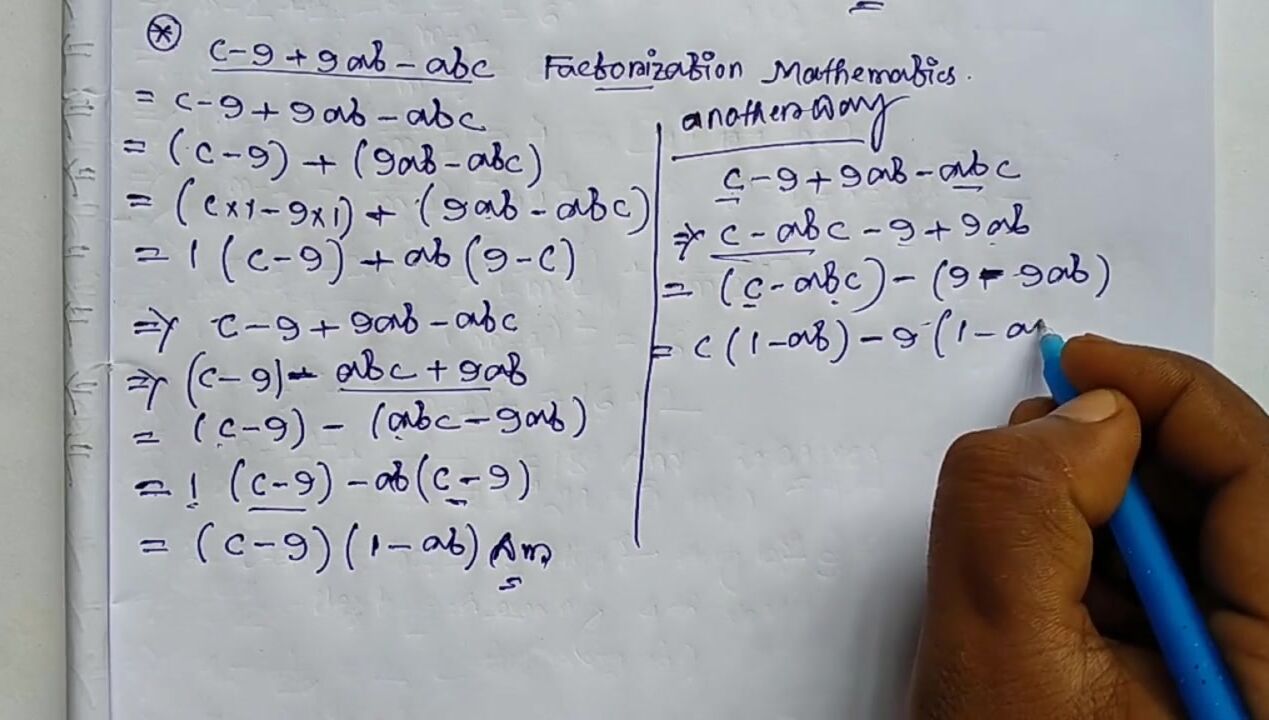 * c-9+9ab-abc Factorization Mathematics.
= c-9+9ab-abc
= (c-9) + (9ab-abc)
= (c×1-9×1) + (9ab-abc)
= 1(c-9) + ab(9-c)
⇒ c-9+9ab-abc
⇒ (c-9)- abc+9ab
= (c-9) - (abc-9ab)
= 1 (c-9) -ab(c-9)
= (c-9)(1-ab) Ans
another way
c-9+9ab-abc
⇒ c-abc-9+9ab
= (c-abc)-(9-9ab)
= c(1-ab)-9(1-a